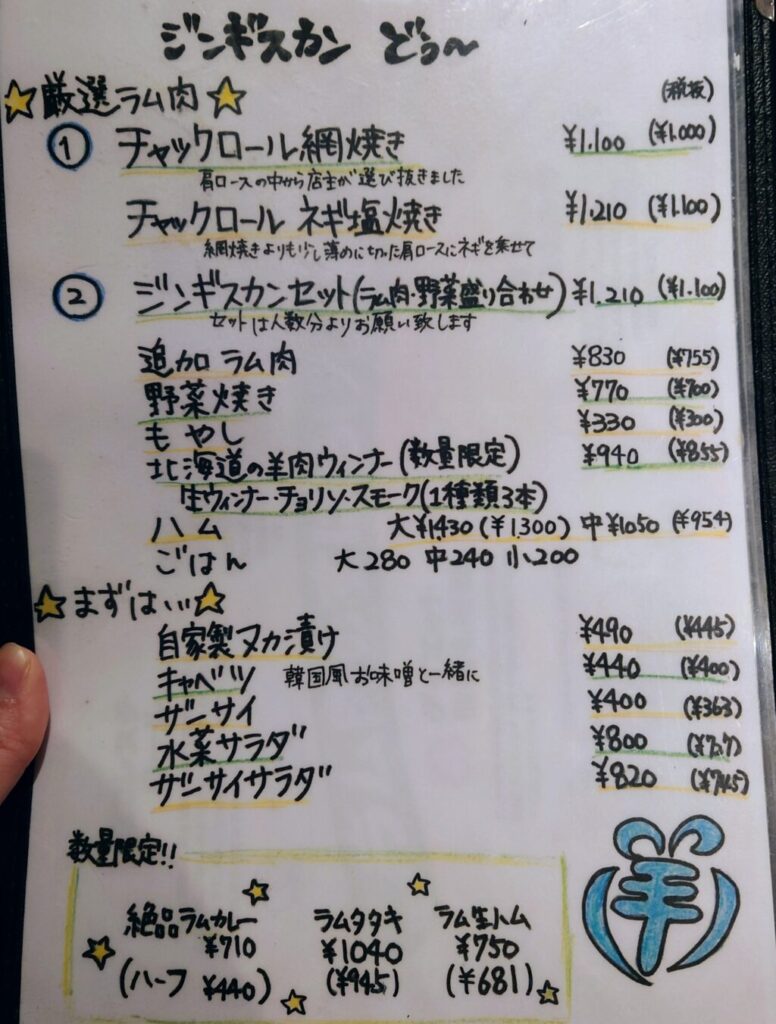 ジンギスカン どぅ〜
厳選ラム肉
(税抜)
① チャックロール網焼き ¥1.100 (¥1.000)
肩ロースの中から店主が選び抜きました
チャックロール ネギ塩焼き ¥1.210 (¥1.100)
網焼きよりも少し薄めに切った肩ロースにネギを乗せて
② ジンギスカンセット(ラム肉・野菜盛り合わせ) ¥1.210 (¥1.100)
セットは人数分よりお願い致します
追加 ラム肉 ¥830 (¥755)
野菜焼き ¥770 (¥700)
もやし ¥330 (¥300)
北海道の羊肉ウィンナー(数量限定) ¥940 (¥855)
生ウィンナー・チョリソ・スモーク(1種類3本)
ハム 大¥1430(¥1.300) 中¥1050 (¥954)
ごはん 大280 中240 小200
まずは...
自家製ヌカ漬け ¥490 (¥445)
キャベツ 韓国風お味噌と一緒に ¥440 (¥400)
ザーサイ ¥400 (¥363)
水菜サラダ ¥800 (¥727)
ザーサイサラダ ¥820 (¥745)
数量限定!!
絶品ラムカレー ラムタタキ ラム生ハム
¥710 ¥1040 ¥750
(ハーフ ¥440) (¥945) (¥681)
羊